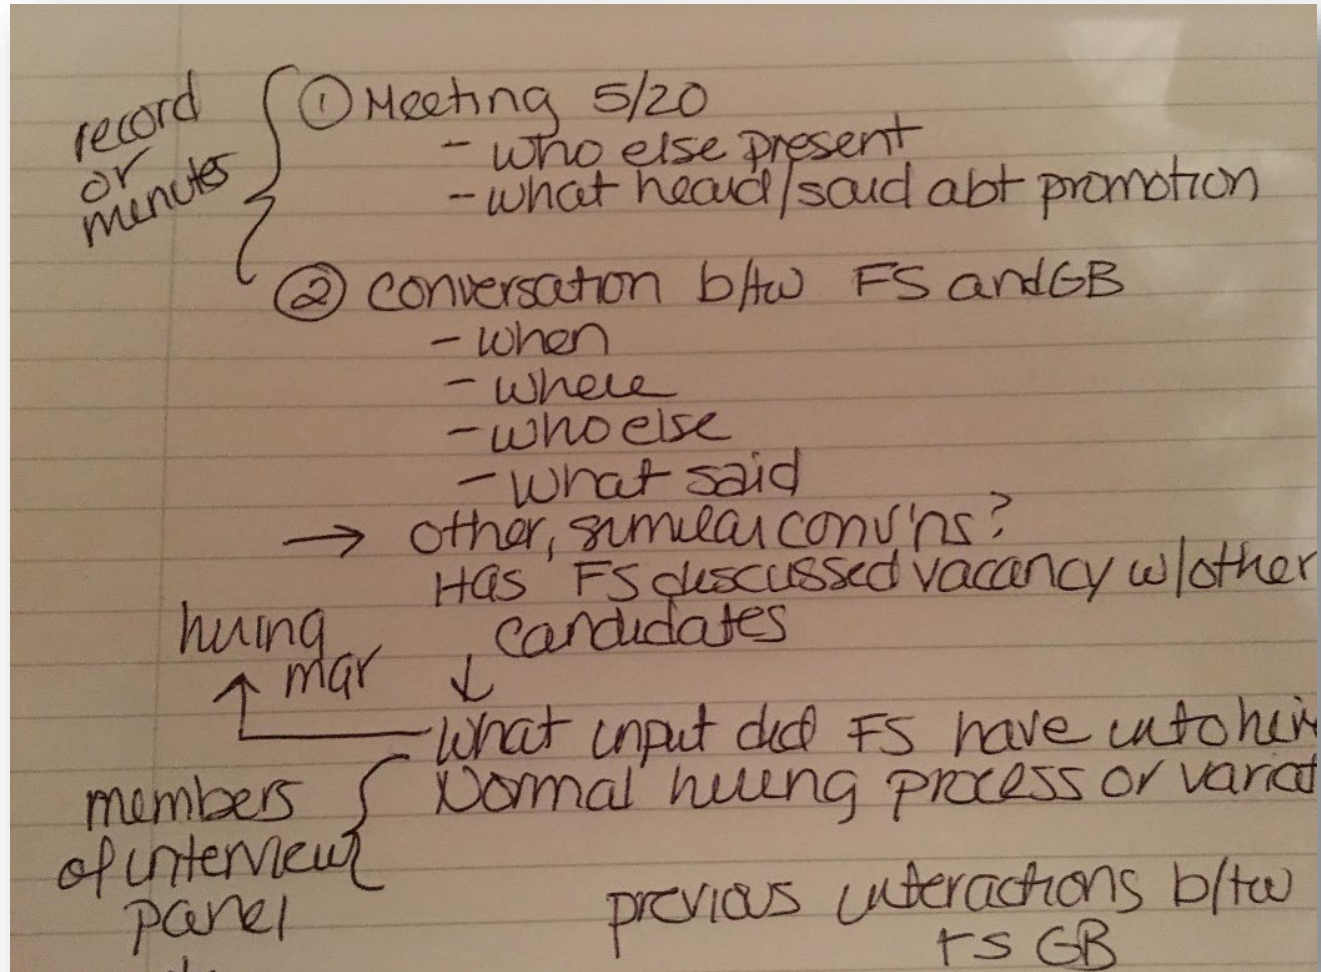 record
or
minutes
① Meeting 5/20
- who else present
- what heard/said abt promotion
② conversation b/tw FS and GB
- when
- where
- who else
- what said
→ other, similar conv'ns?
Has FS discussed vacancy w/other
candidates
hiring
mgr
What input did FS have into hiri
Normal hiring process or variat
members
of interview
panel
previous interactions b/tw
FS GB